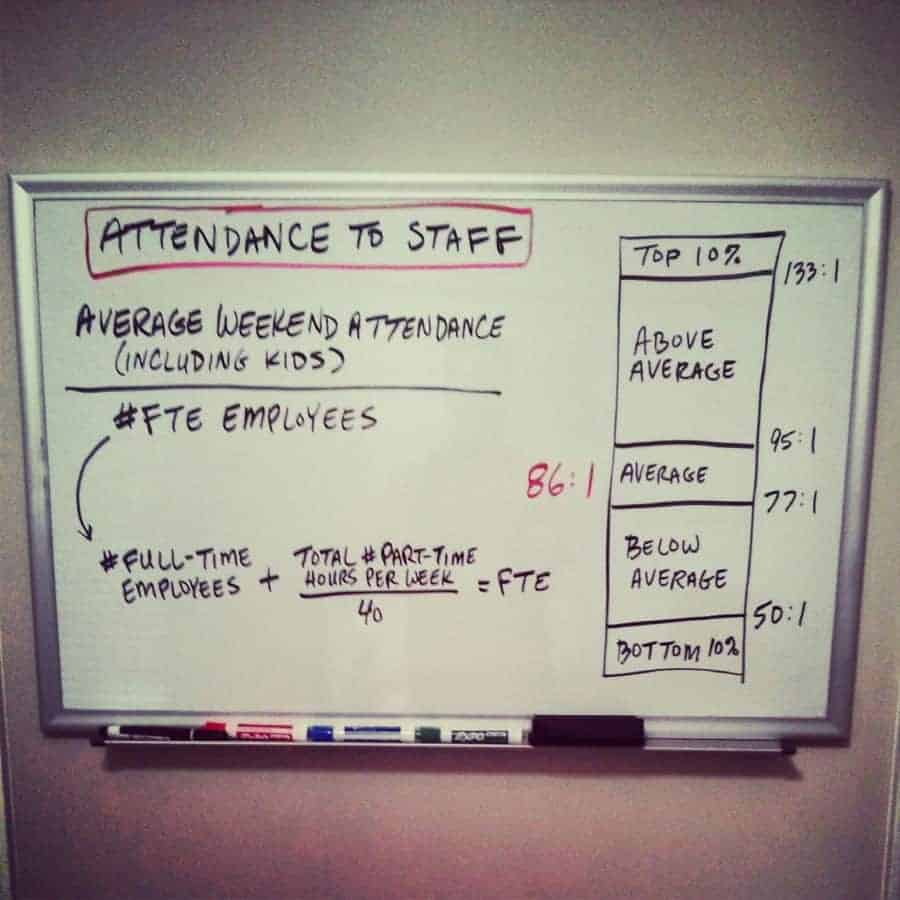 ATTENDANCE TO STAFF
AVERAGE WEEKEND ATTENDANCE
(INCLUDING KIDS)
#FTE EMPLOYEES
#FULL-TIME
EMPLOYEES + TOTAL #PART-TIME
HOURS PER WEEK = FTE
40
TOP 10%
133:1
ABOVE
AVERAGE
95:1
86:1 AVERAGE
77:1
BELOW
AVERAGE
50:1
BOTTOM 10%
EXPO